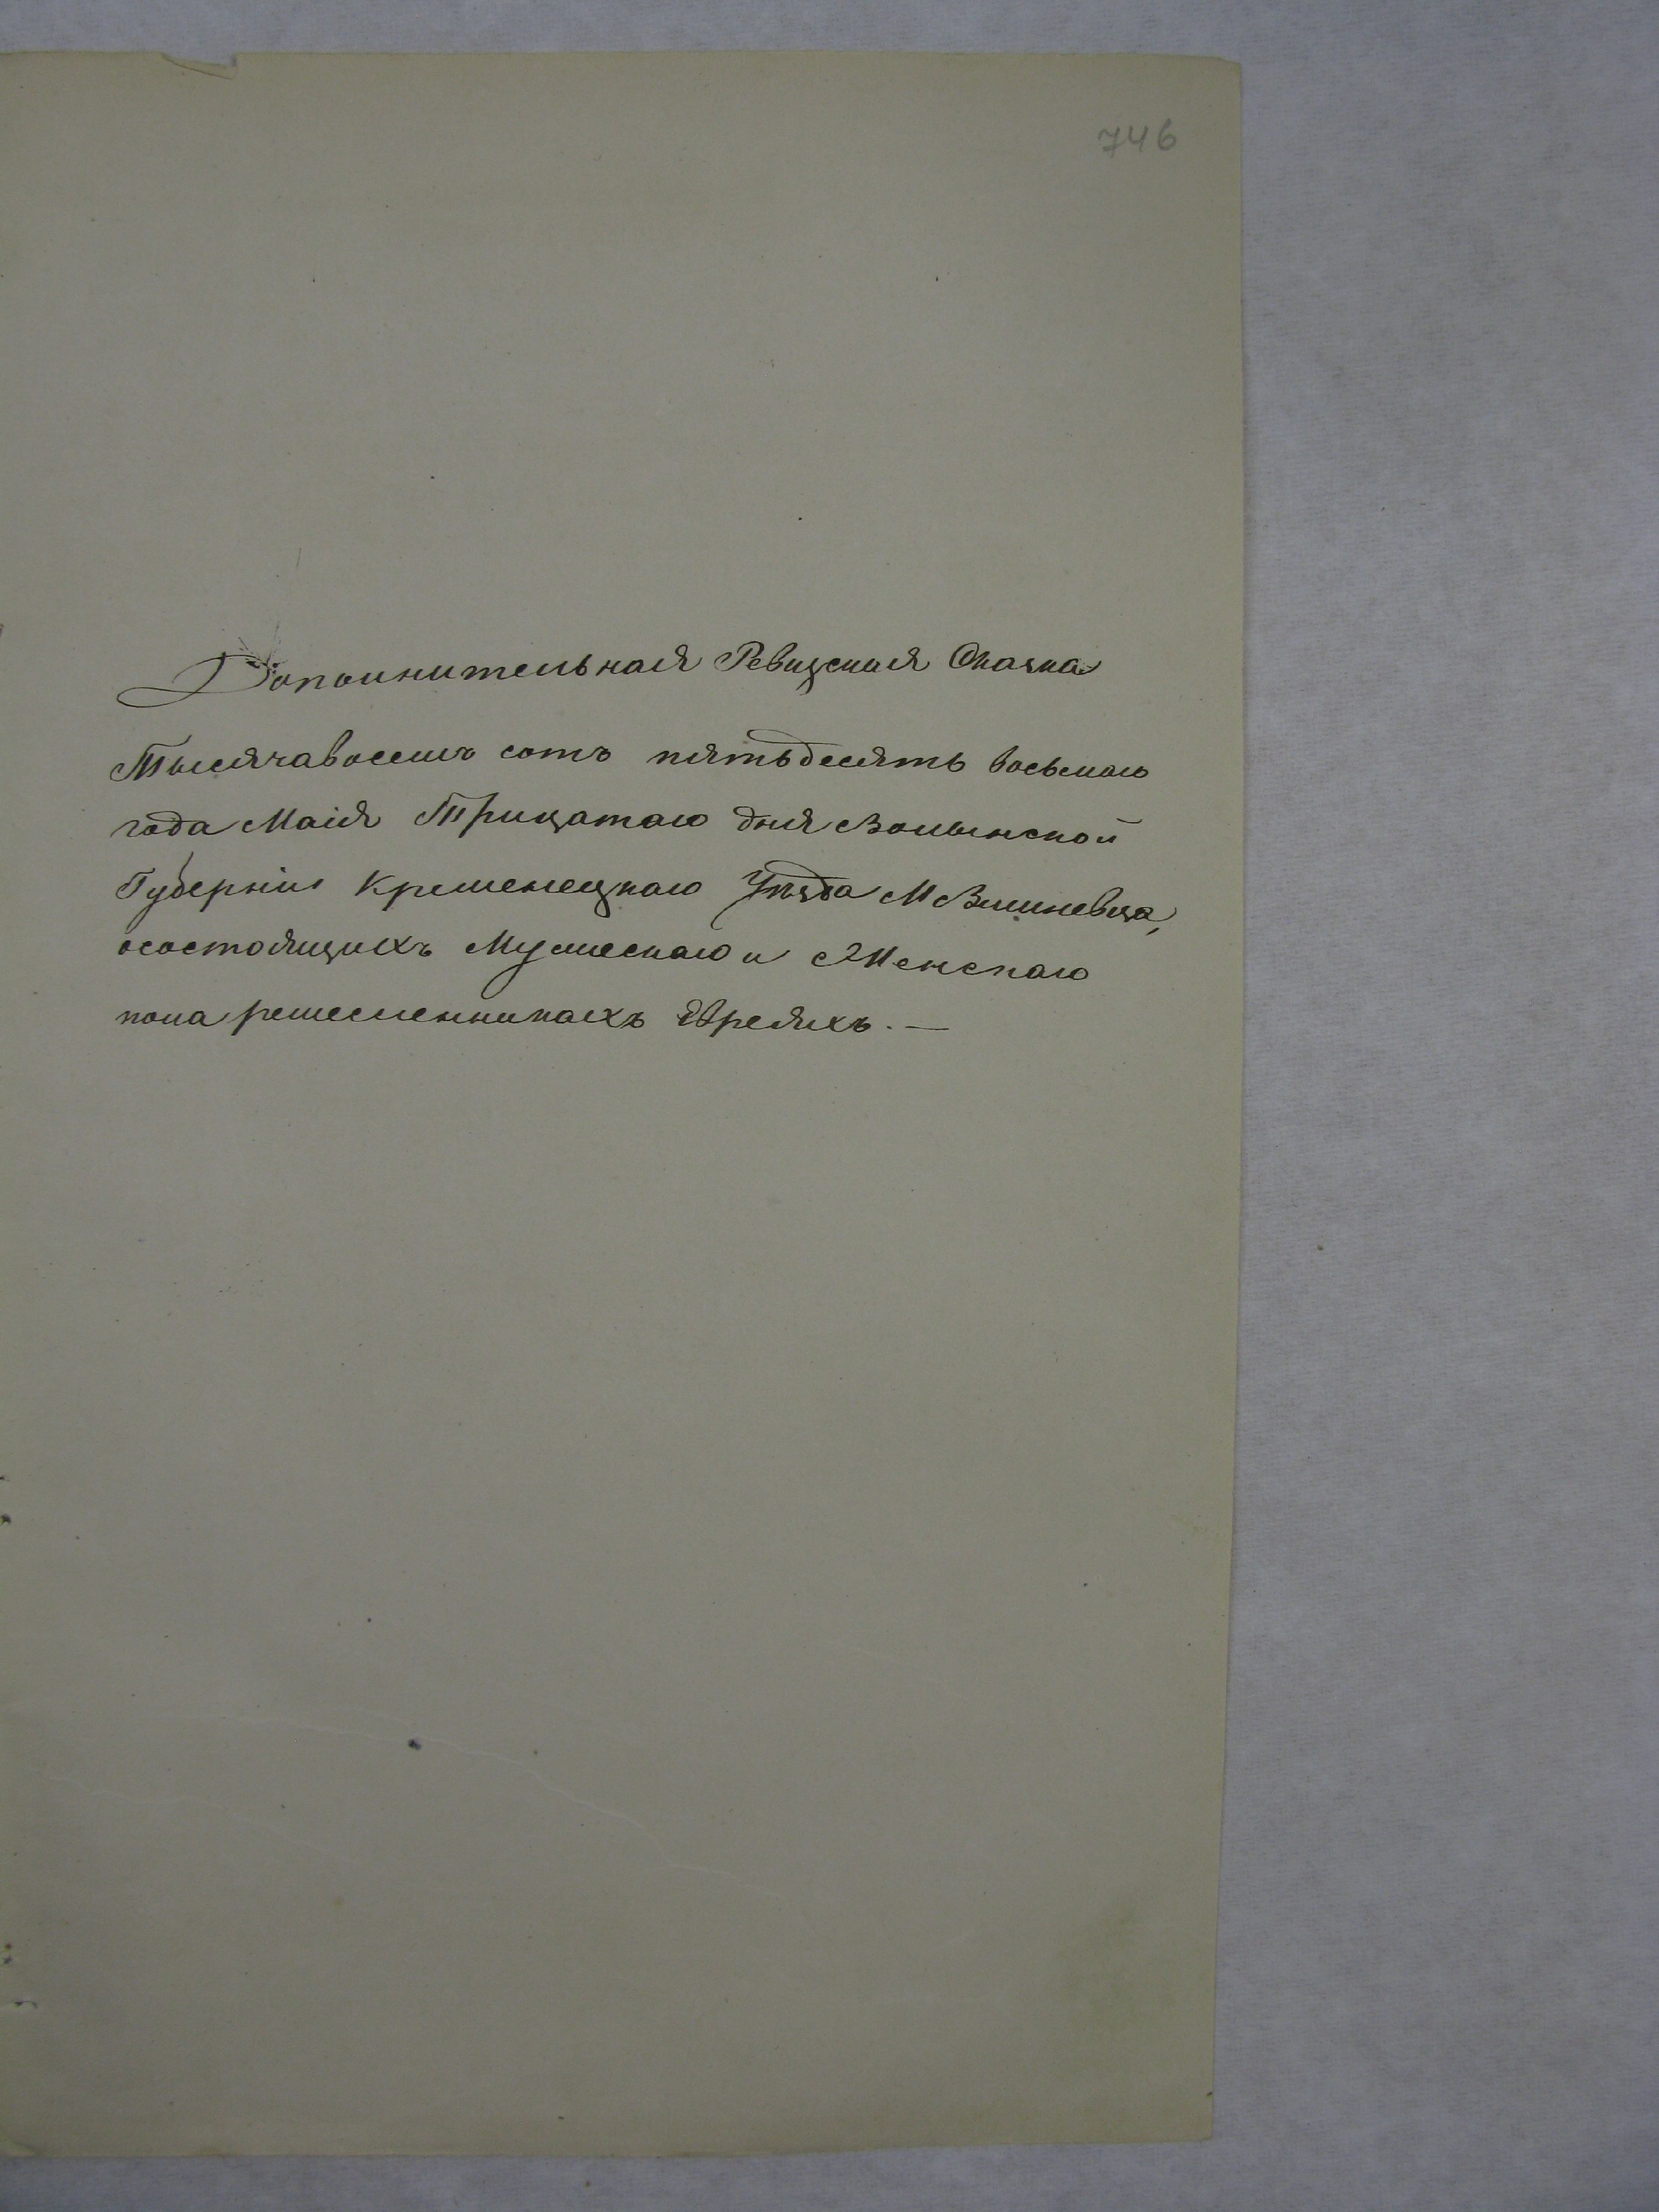 746
Дополнительная Ревизская Сказка
Тысячавосемъ сотъ пятьдесятъ восьмаго
года Маія Тридцатаго дня Волынской
Губерніи Кременецкаго Уѣзда М Вишневца,
осостоящихъ Мужескаго и Женскаго
пола ремесленникахъ Евреяхъ. —